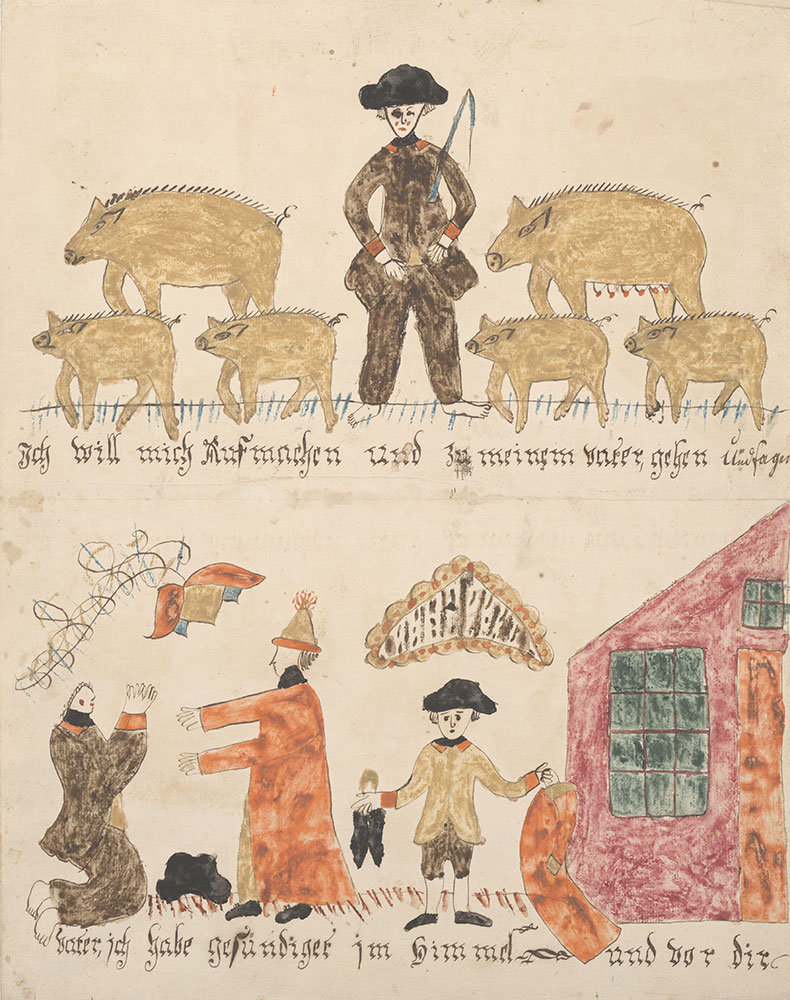 Ich will mich Aufmachen und zu meinem vater, gehen Und sagen
Vater, ich habe gesündiget im Himmel und vor dir